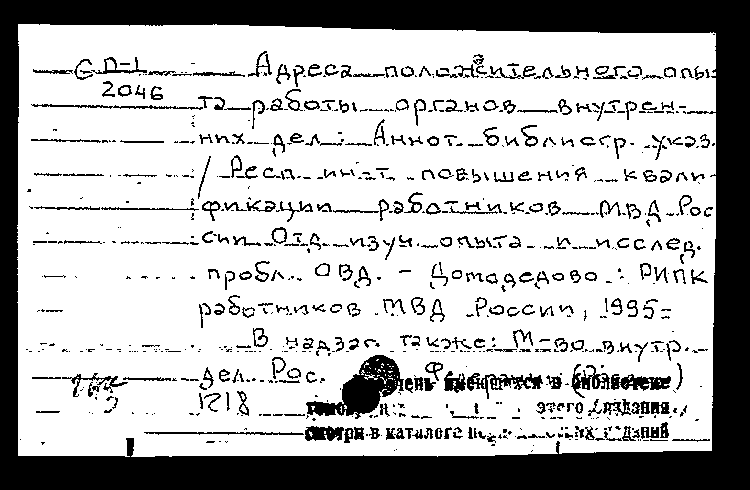 С П-1
2046
Адреса положительного опы
та работы органов внутрен-
них дел: Аннот. библиогр. указ.
/ Респ. инст. повышения квали-
фикации работников МВД Рос
сии. Отд. изуч. опыта и исслед.
пробл. ОВД. - Домодедово: РИПК
работников МВД России, 1995-
В надзаг. также: М-во внутр.
дел Рос. Федерации
1218
имеющихся в библиотеке
томов этого издания
смотри в каталоге изданий